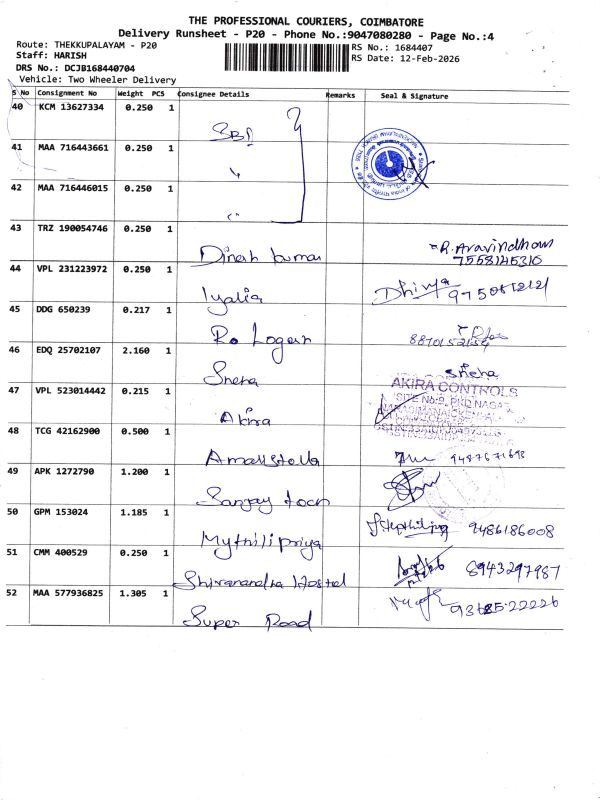 THE PROFESSIONAL COURIERS, COIMBATORE
Delivery Runsheet - P20 - Phone No.:9047080280 - Page No.:4
Route: THEKKUPALAYAM - P20
RS No.: 1684407
Staff: HARISH
RS Date: 12-Feb-2026
DRS No.: DCJB168440704
Vehicle: Two Wheeler Delivery
S No Consignment No Weight PCS Consignee Details Remarks Seal & Signature
40 KCM 13627334 0.250 1 SBI
41 MAA 716443661 0.250 1 "
42 MAA 716446015 0.250 1 "
43 TRZ 190054746 0.250 1 Dinesh kumar R. Aravindhan
7558145310
44 VPL 231223972 0.250 1 Iyalia Dhivya
45 DDG 650239 0.217 1 Ro Logan
46 EDQ 25702107 2.160 1 Sneha Sneha
AKIRA CONTROLS
47 VPL 523014442 0.215 1 Akira
48 TCG 42162900 0.500 1 9487671698
49 APK 1272790 1.200 1 Sanjay
50 GPM 153024 1.185 1 Mythilipriya 9486186008
51 CMM 400529 0.250 1 Shivanandha Hostel 8943297987
52 MAA 577936825 1.305 1 Super Road